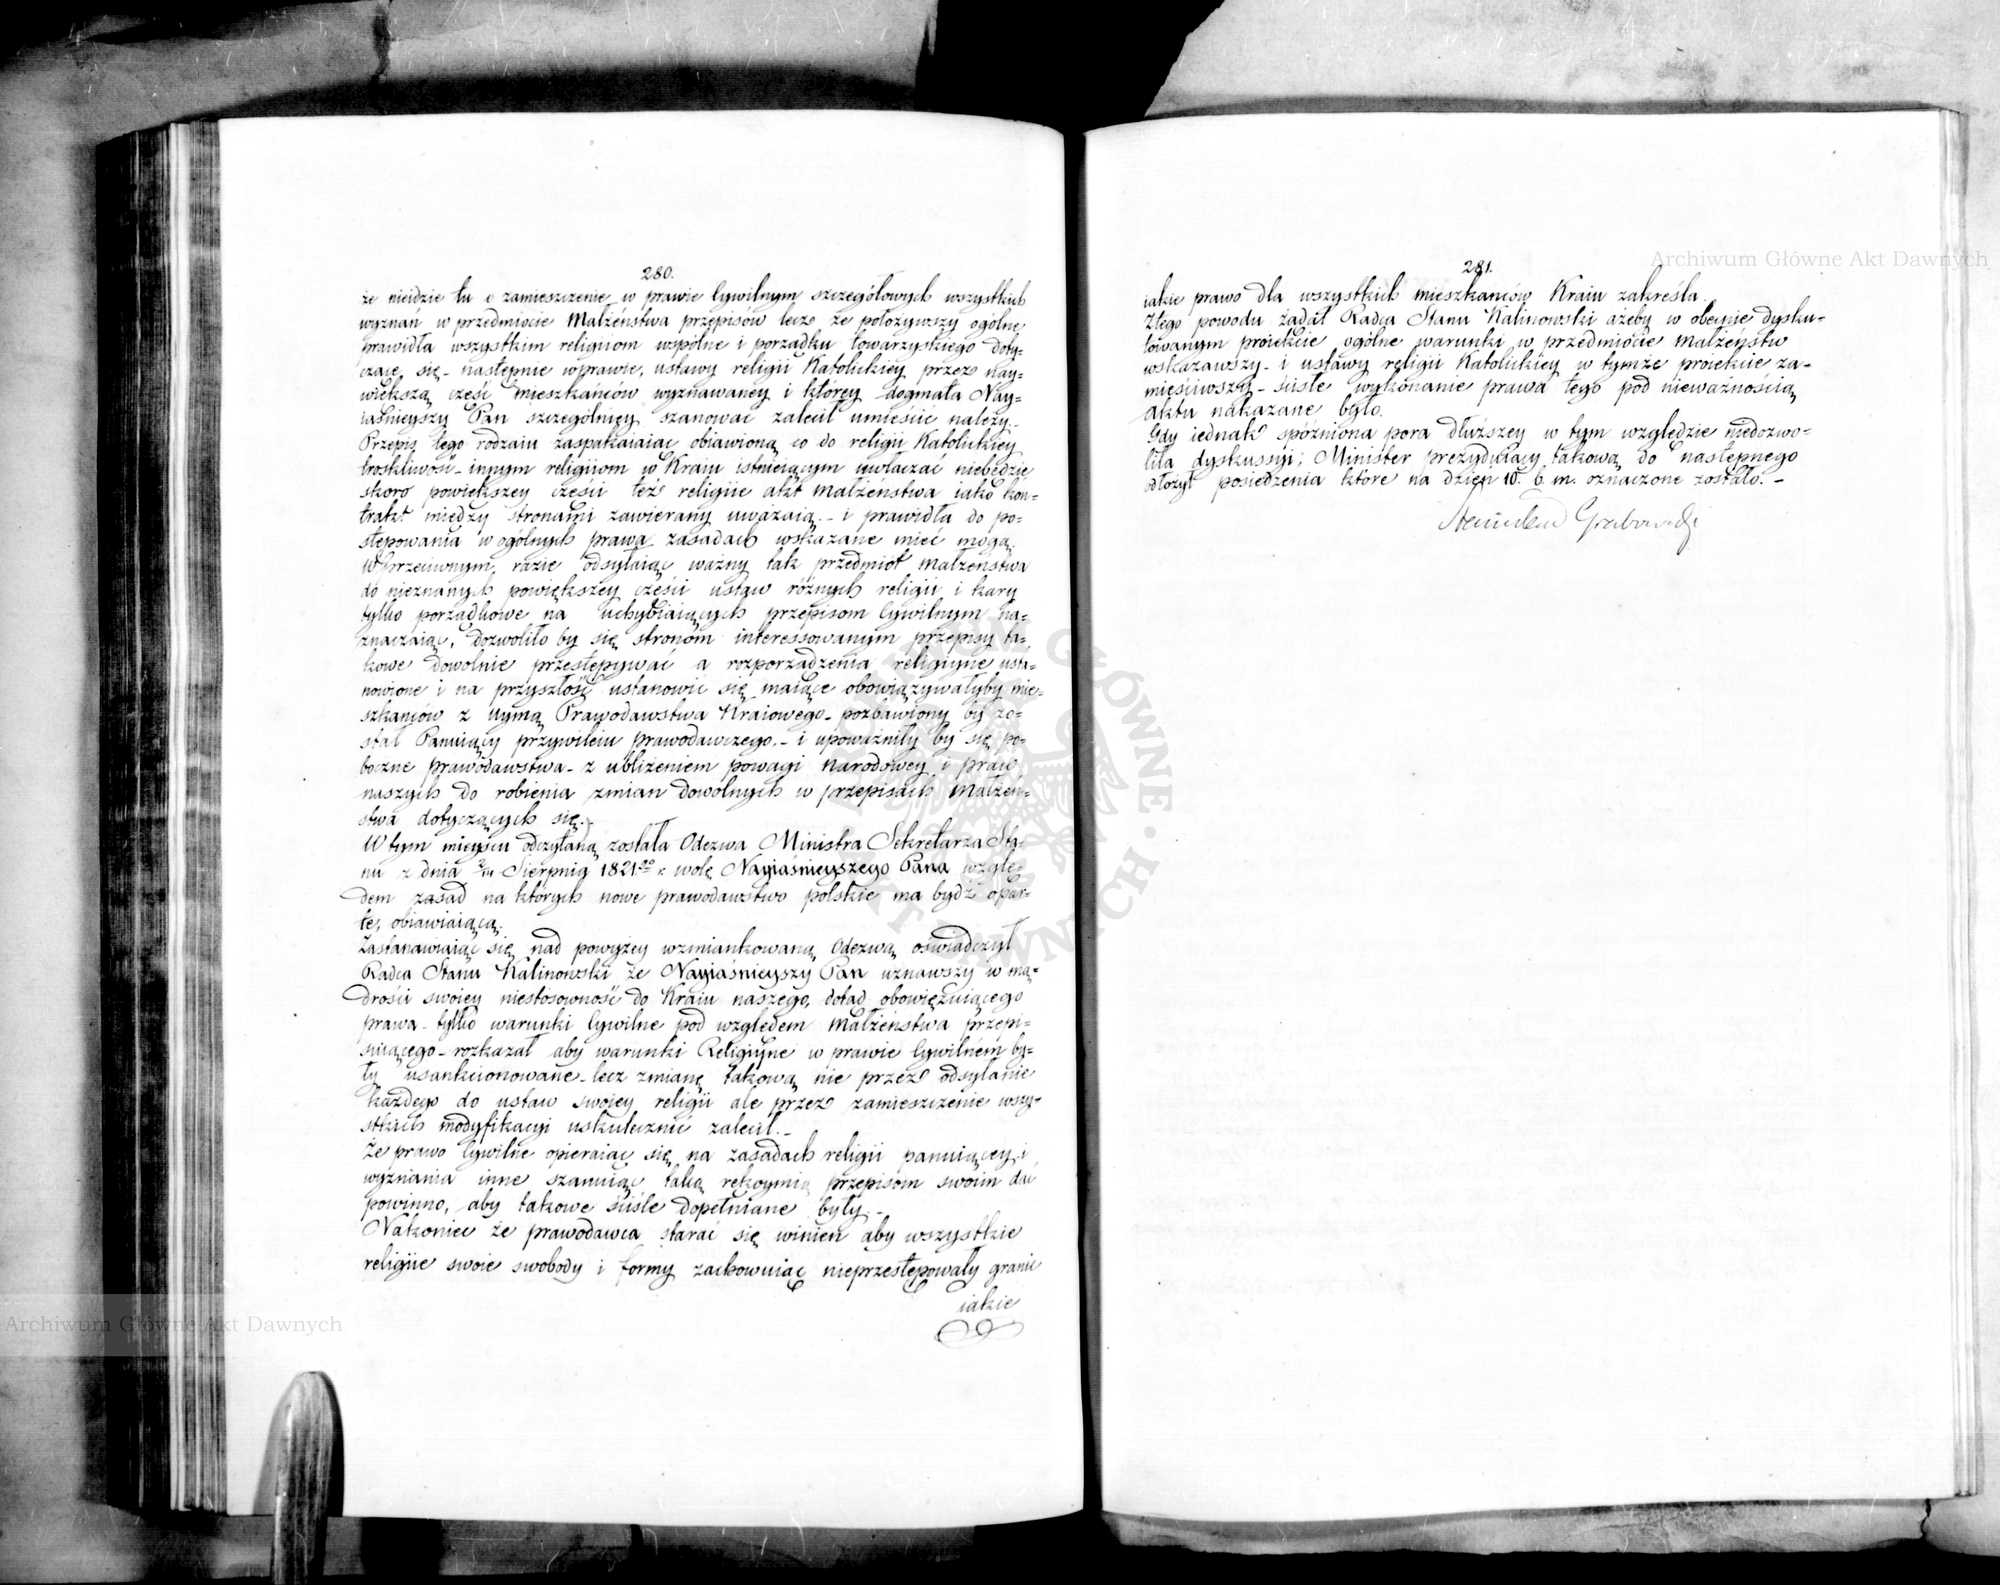 280.
że nieidzie tu o zamieszczenie w prawie Cywilnym szczegółowych wszystkich
wyznań w przedmiocie Małżeństwa przepisów lecz że położywszy ogólne
prawidła wszystkim religiiom wspólne i porządku towarzyskiego doty-
czące się – następnie w prawie, ustawy religii Katolickiey przez nay-
większą część mieszkańców wyznawaney i którey dogmata Nay-
iaśnieyszy Pan szczególniey szanować zalecił umieścić należy.
Przepis tego rodzaiu zaspakaiaiąc obiawioną co do religii Katolickiey
troskliwość – innym religiiom w Kraiu istnieiącym uwłaczać niebędzie
skoro powiększey części też religiie akt małżeństwa iako kon-
trakt między stronami zawierany uważaią. – i prawidła do po-
stępowania w ogólnych prawa zasadach wskazane mieć mogą.
W przeciwnym razie odsyłaiąc ważny tak przedmiot małżeństwa
do nieznanych powiększey części ustaw różnych religii i kary
tylko porządkowe na uchybiaiących przepisom Cywilnym na-
znaczaiąc, dozwoliło by się stronom interessowanym przepisy ta-
kowe dowolnie przestępywać a rozporządzenia religiyne usta-
nowione i na przyszłość ustanowić się maiące obowiązywałyby mie-
szkańców z uymą Prawodawstwa Kraiowego – pozbawiony by zo-
stał Panuiący przywileiu prawodawczego. – i upoważniły by się po-
boczne prawodawstwa – z ubliżeniem powagi Narodowey i praw
naszych do robienia zmian dowolnych w przepisach Małżeń-
stwa dotyczących się.
W tym mieyscu odczytaną została Odezwa Ministra Sekretarza Sta-
nu z dnia Sierpnia 1821go r. wolę Nayiaśnieyszego Pana wzglę-
dem zasad na których nowe prawodawstwo polskie ma bydź opar-
te, obiawiaiąca.
Zastanawiaiąc się nad powyżey wzmiankowaną Odezwą oświadczył
Radca Stanu Kalinowski że Nayiaśnieyszy Pan uznawszy w mą-
drości swoiey niestosowność do Kraiu naszego, dotąd obowięzuiącego
prawa – tylko warunki Cywilne pod względem Małżeństwa przepi-
suiącego – rozkazał aby warunki Religiyne w prawie Cywilném by-
ły usankcionowane – lecz zmianę takową nie przez odsyłanie
każdego do ustaw swoiey religii ale przez zamieszczenie wszy-
stkich modyfikacyi uskutecznić zalecił. –
Że prawo Cywilne opieraiąc się na zasadach religii panuiącey i
wyznania inne szanuiąc taką rękoymią przepisom swoim dać
powinno, aby takowe ściśle dopełniane były. –
Nakoniec że prawodawca starać się winien aby wszystkie
religiie swoie swobody i formy zachowuiąc nieprzestępowały granic
iakie
281.
iakie prawo dla wszystkich mieszkańców Kraiu zakréśla.
Z tego powodu żądał Radca Stanu Kalinowski ażeby w obecnie dysku-
towanym proiekcie ogólne warunki w przedmiocie małżeństw
wskazawszy – i ustawy religii Katolickiey w tymże proiekcie za-
mieściwszy – ścisłe wykonanie prawa tego pod nieważnością
Aktu nakazane było.
Gdy iednak spóźniona pora dłuższey w tym względzie niedozwo-
liła dyskussyi; Minister prezyduiący takową do następnego
odłożył posiedzenia które na dzień 10. b. m. oznaczone zostało. –
Stanisław Grabowski
Archiwum Główne Akt Dawnych
Archiwum Główne Akt Dawnych